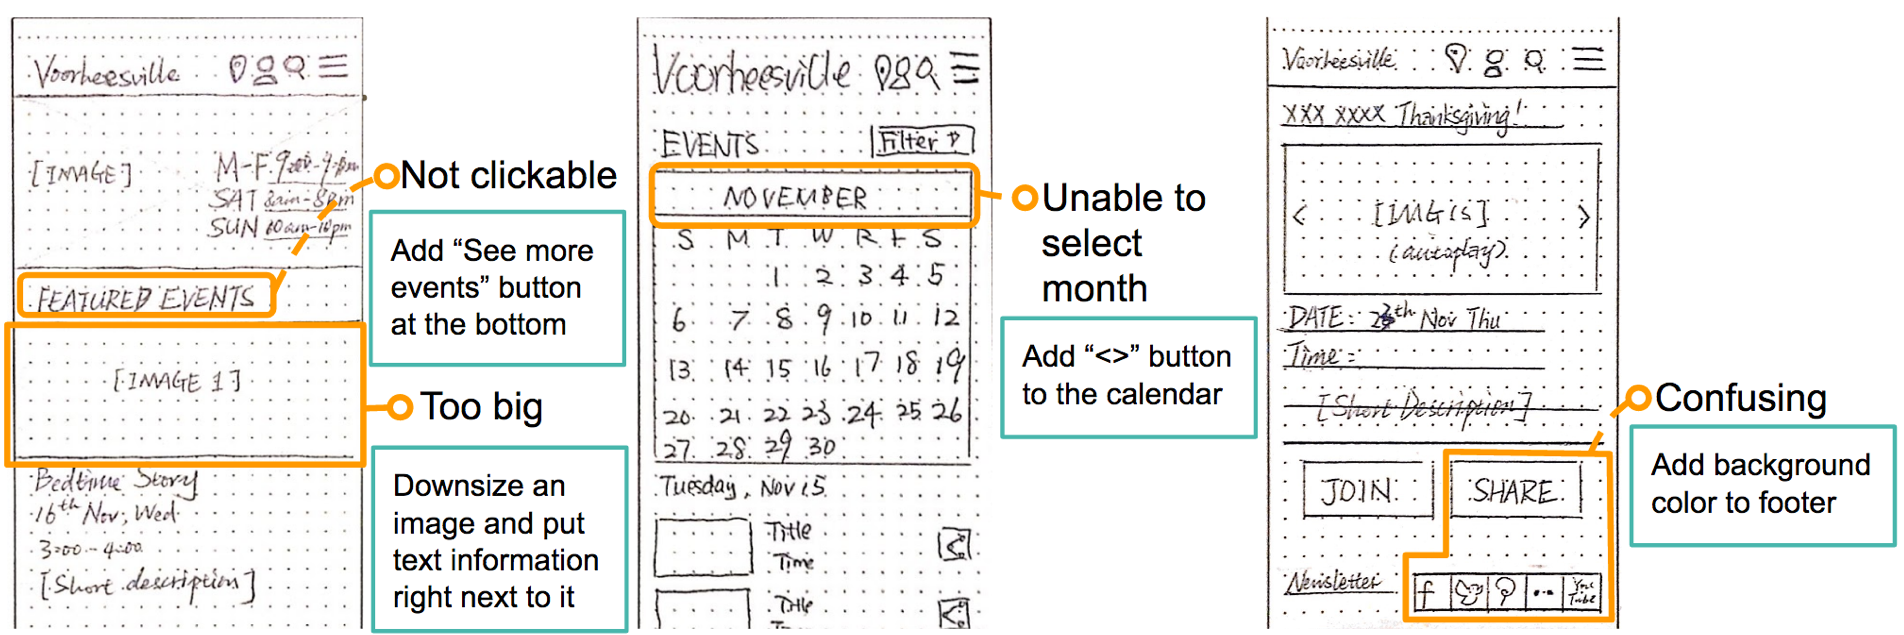 Voorheesville
[IMAGE]
M-F 9:00-9:00pm
SAT 8am-8pm
SUN 10am-10pm
FEATURED EVENTS
[IMAGE 1]
Bedtime Story
16th Nov, Wed
3:00-4:00
[Short description]
Not clickable
Add “See more
events” button
at the bottom
Too big
Downsize an
image and put
text information
right next to it
Voorheesville
EVENTS
Filter
NOVEMBER
S M T W R F S
1 2 3 4 5
6 7 8 9 10 11 12
13 14 15 16 17 18 19
20 21 22 23 24 25 26
27 28 29 30
Tuesday, Nov 15
Title
Time
Title
Time
Unable to
select
month
Add “<>” button
to the calendar
Voorheesville
XXX XXXX Thanksgiving!
< [IMG(s)] >
(autoplay)
DATE: th Nov Thu
Time:
[Short Description]
JOIN SHARE
Newsletter f You
Tube
Confusing
Add background
color to footer